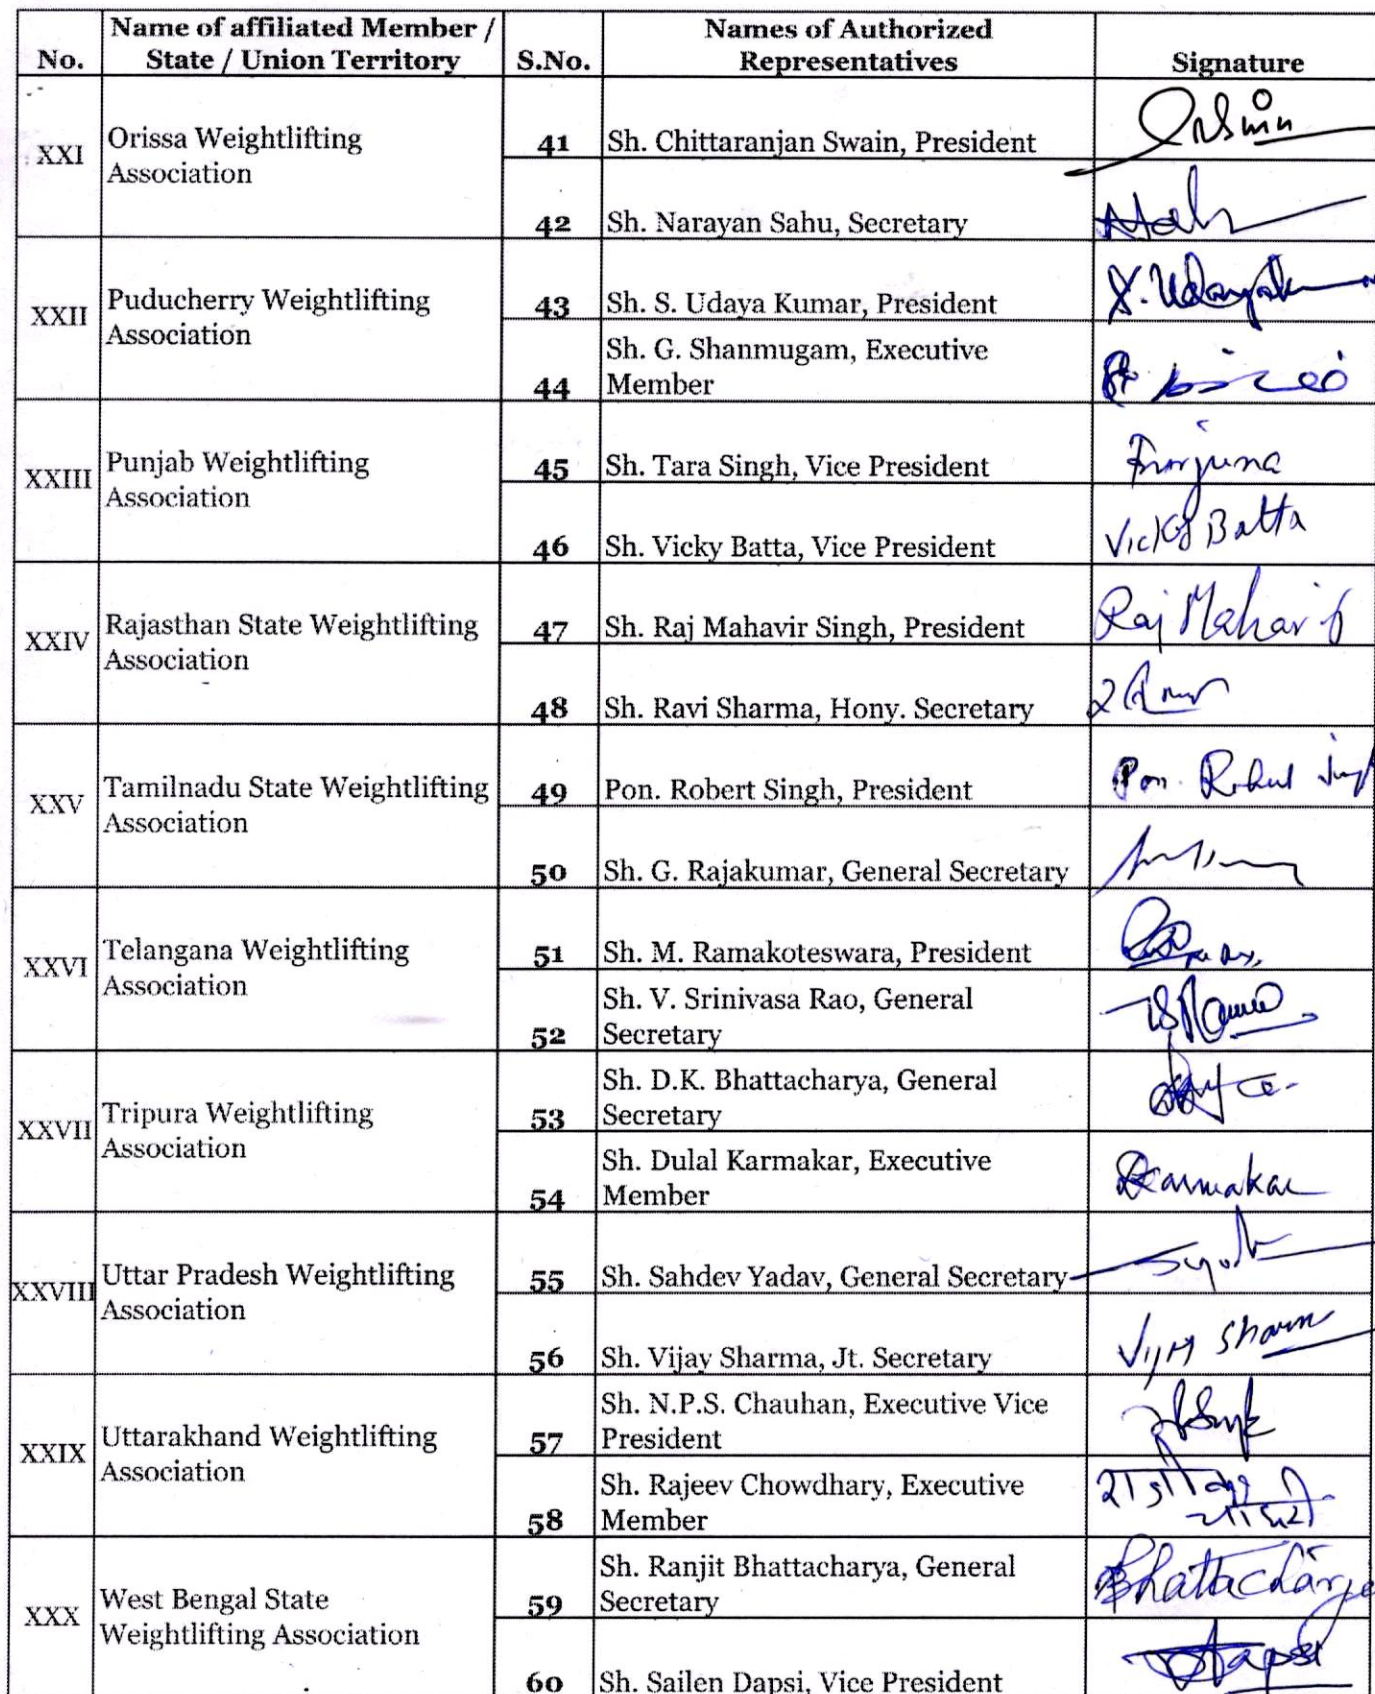 No.
Name of affiliated Member /
State / Union Territory
S.No.
Names of Authorized
Representatives
Signature
XXI
Orissa Weightlifting
Association
41
Sh. Chittaranjan Swain, President
42
Sh. Narayan Sahu, Secretary
XXII
Puducherry Weightlifting
Association
43
Sh. S. Udaya Kumar, President
44
Sh. G. Shanmugam, Executive
Member
XXIII
Punjab Weightlifting
Association
45
Sh. Tara Singh, Vice President
46
Sh. Vicky Batta, Vice President
Vicky Batta
XXIV
Rajasthan State Weightlifting
Association
47
Sh. Raj Mahavir Singh, President
Raj Mahavir
48
Sh. Ravi Sharma, Hony. Secretary
XXV
Tamilnadu State Weightlifting
Association
49
Pon. Robert Singh, President
Pon. Robert Singh
50
Sh. G. Rajakumar, General Secretary
XXVI
Telangana Weightlifting
Association
51
Sh. M. Ramakoteswara, President
52
Sh. V. Srinivasa Rao, General
Secretary
XXVII
Tripura Weightlifting
Association
53
Sh. D.K. Bhattacharya, General
Secretary
54
Sh. Dulal Karmakar, Executive
Member
DKarmakar
XXVIII
Uttar Pradesh Weightlifting
Association
55
Sh. Sahdev Yadav, General Secretary
56
Sh. Vijay Sharma, Jt. Secretary
Vijay Sharma
XXIX
Uttarakhand Weightlifting
Association
57
Sh. N.P.S. Chauhan, Executive Vice
President
58
Sh. Rajeev Chowdhary, Executive
Member
XXX
West Bengal State
Weightlifting Association
59
Sh. Ranjit Bhattacharya, General
Secretary
60
Sh. Sailen Dapsi, Vice President